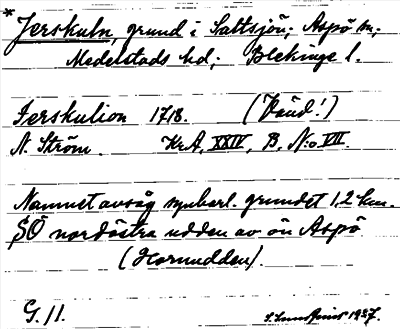 * Jerskuln, grund i Saltsjön; Aspö sn;
Medelstads hd; Blekinge l.
Ierskulion 1718. (Vänd!)
N. Ström. Kr.A, XXIV, B, N:o VII
Namnet avsåg synbarl. grundet 1,2 km.
SÖ nordöstra udden av ön Aspö
(Hornudden).
G. 11. 1927.